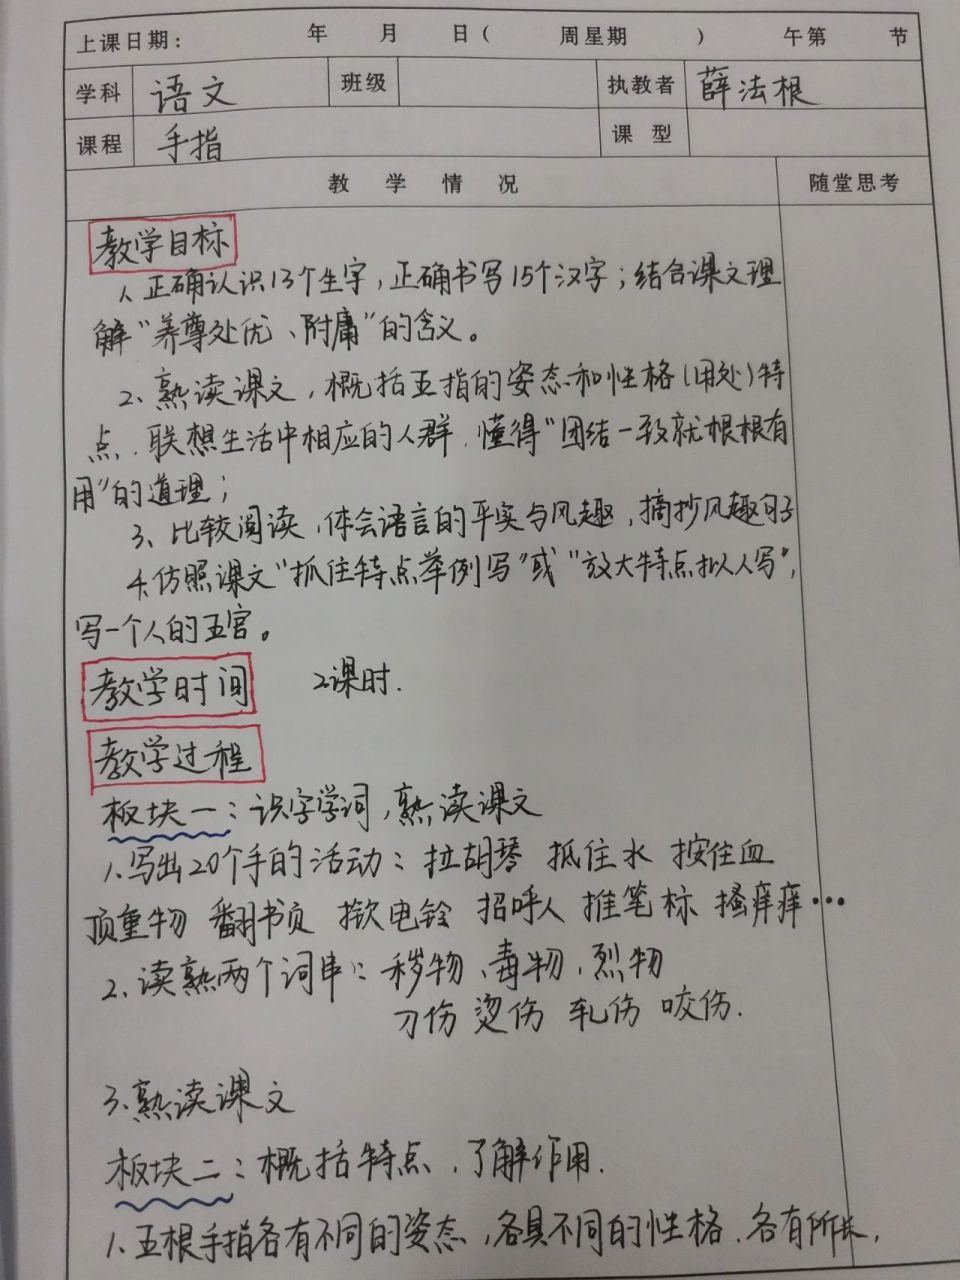 上课日期： 年 月 日（ 周星期 ） 午第 节
学科 语文 班级 执教者 薛法根
课程 手指 课 型
教 学 情 况 随堂思考
教学目标
1、正确认识13个生字，正确书写15个汉字；结合课文理
解“养尊处优、附庸”的含义。
2、熟读课文，概括五指的姿态和性格（用处）特
点，联想生活中相应的人群，懂得“团结一致就根根有
用”的道理；
3、比较阅读，体会语言的平实与风趣，摘抄风趣句子
4.仿照课文“抓住特点举例写”或“放大特点拟人写”，
写一个人的五官。
教学时间 2课时.
教学过程
板块一：识字学词，熟读课文
1.写出20个手的活动：拉胡琴 抵住水 按住血
顶重物 翻书页 揿电铃 招呼人 推笔标 搔痒痒…
2、读熟两个词串：秽物、毒物、烈物
刀伤 烫伤 轧伤 咬伤.
3.熟读课文
板块二：概括特点，了解作用.
1.五根手指各有不同的姿态，各具不同的性格、各有所长，